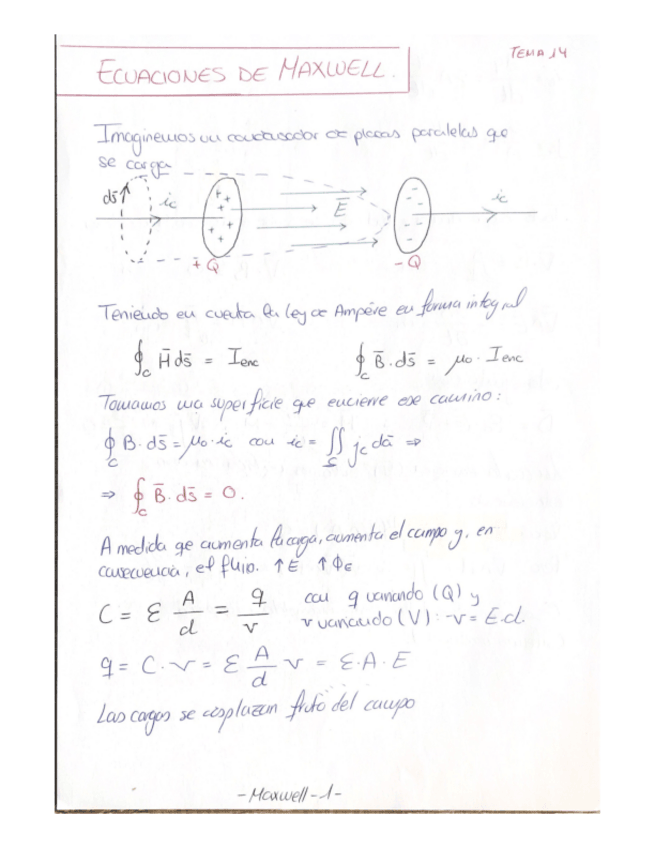 TEMA 14
ECUACIONES DE MAXWELL.
Imaginemos un condensador de placas paralelas que
se carga
ds̄ ic Ē ic
+Q -Q
Teniendo en cuenta la ley de Ampère en forma integral
∮c H̄ ds̄ = Ienc ∮c B̄ · ds̄ = μo · Ienc
Tomamos una superficie que encierre ese camino:
∮c B · ds̄ = μo · ic con ic = ∬s jc dā ⇒
⇒ ∮c B̄ · ds̄ = 0.
A medida que aumenta la carga, aumenta el campo y, en
consecuencia, el flujo. ↑E ↑ΦE
C = ε A/d = q/v con q variando (Q) y
v variando (V): v = E·d.
q = C · v = ε A/d v = ε·A·E
Las cargas se desplazan fruto del campo
-Maxwell-1-